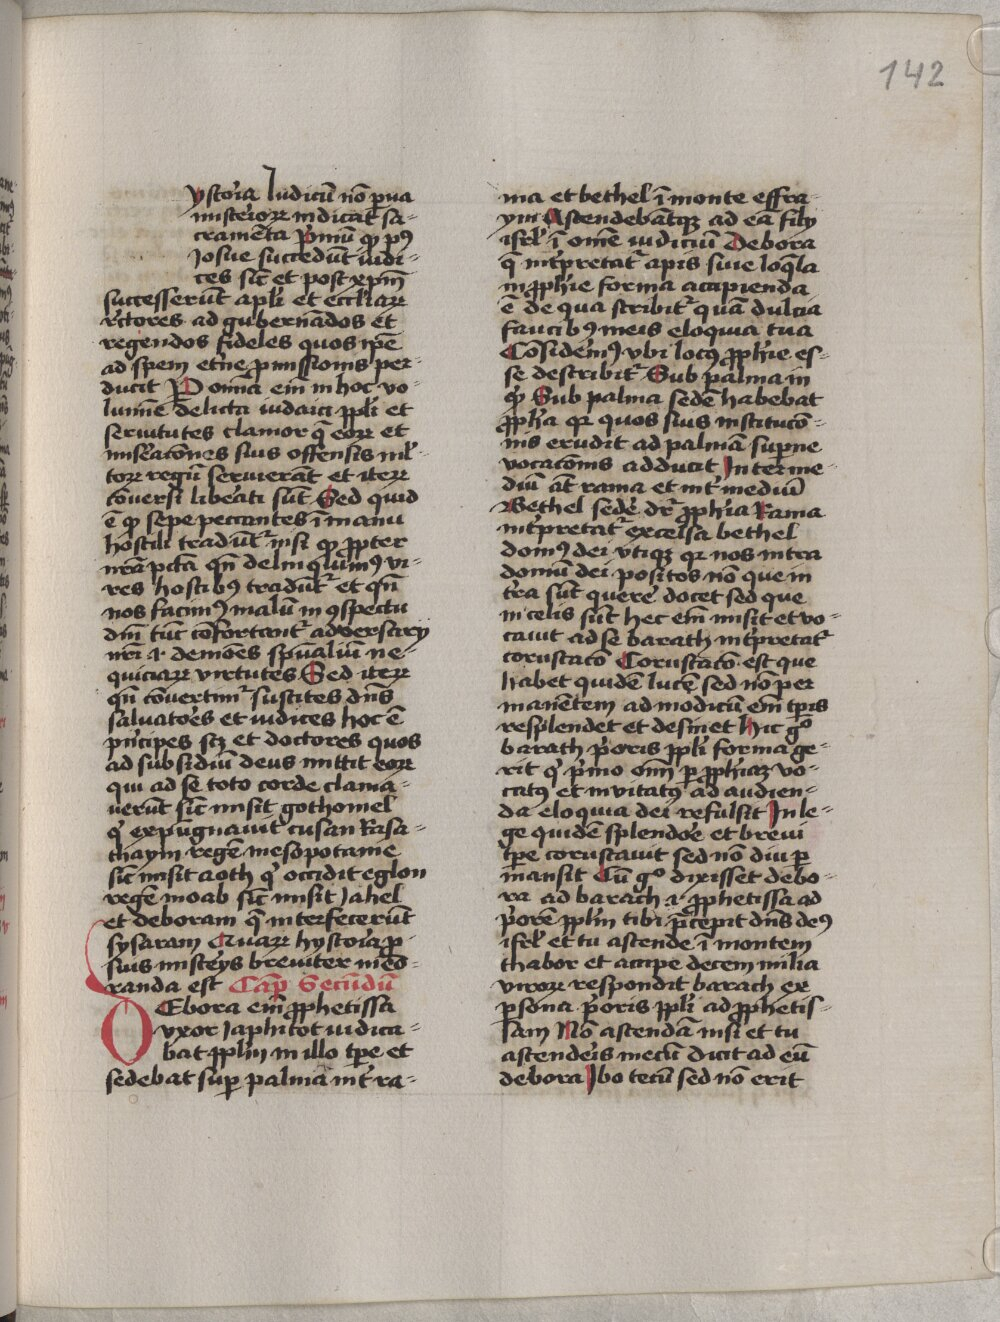 142
ystoria Judicū nō pua
misterioꝝ indicat sa-
cramēta pͥmū qͥ pꝰ
Josue succedūt iudi-
ces sic̄ et post xp̄m
successerūt apl̄i et eccl̄iaꝝ
rectores ad gubernādos et
regendos fideles quos ip̄e
ad spem et̄ne pmissionis per-
ducit Pomia eīn in hoc vo-
lumīe delicta iudaici ppl̄i et
seruitutes clamorqꝫ eoꝝ et
miseac̄ones siuis offensis mͥl-
toꝝ regū seruierāt et iteꝝ
cōuersi libeāti sūt Sed quid
ē qͥ sepe peccantes ī manu
hostili tradūtᷣ nisi qͥ ꝓpter
nr̄a pc̄ta qn̄ delinqūimꝰ vi-
res hostibꝰ tradūtᷣ et qn̄
nos facimꝰ malū in ꝯspectu
dn̄i tūc cōfortantᷣ aduersarij
nr̄i .i. demōes spūaliū ne-
quiciaꝝ virtutes Sed iteꝝ
qn̄ cōuertimᷣ suscites dn̄s
saluatoēs et iudices hoc ē
pͥncipes scꝫ et doctores quos
ad subsidiū deus mittit eoꝝ
qui ad se toto corde clama-
uerūt sic̄ misit gothomel
qͥ expugnauit cusan Rasa-
thaym regē mesopotamie
sic̄ misit aoth qͥ occidit eglon
regē moab sic̄ misit Jahel
et deboram qͤ interfecerūt
sysaram Quaꝝ hystoria p-
suis misteijs breuiter med-
randa est Cap̄ Secūdū
DEbora eīn ꝓphetissa
vxor Japhitot iudica-
bat ppl̄m in illo tꝑe et
sedebat suꝑ palmā int̄ ra-
ma et bethel ī monte effra-
ym Ascendebātqꝫ ad eā filij
isrl̄ ī om̄e iudiciū Debora
qͤ int̄pretatᷣ apis siue loqͤla
in ꝓph̄ie forma accipienda
ē de qua scribitᷣ quā dulcia
faucibꝰ meis eloquia tua
Cōsidemꝰ vbi locꝰ ꝓph̄ie es-
se describitᷣ Sub palma in
qͥ Sub palma sedē habebat
ꝓph̄a qꝛ quos siuis institucō-
nis erudit ad palmā suꝑne
vocacōnis adducit Interme-
diū āt rama et int̄ mediū
Bethel sedē dr̄ ꝓph̄ia Rama
int̄pretatᷣ excelsa bethel
domꝰ dei vtiqꝫ qꝛ nos intra
domū dei positos nō que in
t̄ra sūt querē docet sed que
in celis sūt hec eīn misit et vo-
cauit ad se barath int̄pretatᷣ
coruscacō Coruscacō est que
habet quidē lucē sed nō per
manētem ad modicū eīn tꝑis
resplendet et desinet Hic gͦ
barath pͥoris ppl̄i forma ge-
rit qͥ pͥmo om̄i ꝑ ꝓph̄iaꝫ vo-
catꝰ et inuitatꝰ ad audien-
da eloquia dei refulsit In le-
ge quidē splendoē et breui
tꝑe coruscauit sed nō diu ꝑ
mansit Cū gͦ dixisset debo-
ra ad barach .i. ꝓphetissa ad
pͥorē ppl̄m tibi pͥcepit dn̄s deꝰ
isrl̄ et tu ascende ī montem
thabor et accipe decem milia
viroꝝ respondit barach ex
ꝑsona pͥoris ppl̄i ad ꝓphetis-
sam Nō ascendā nisi et tu
ascendeīs mecū dicit ad eū
debora Ibo tecū sed nō erit